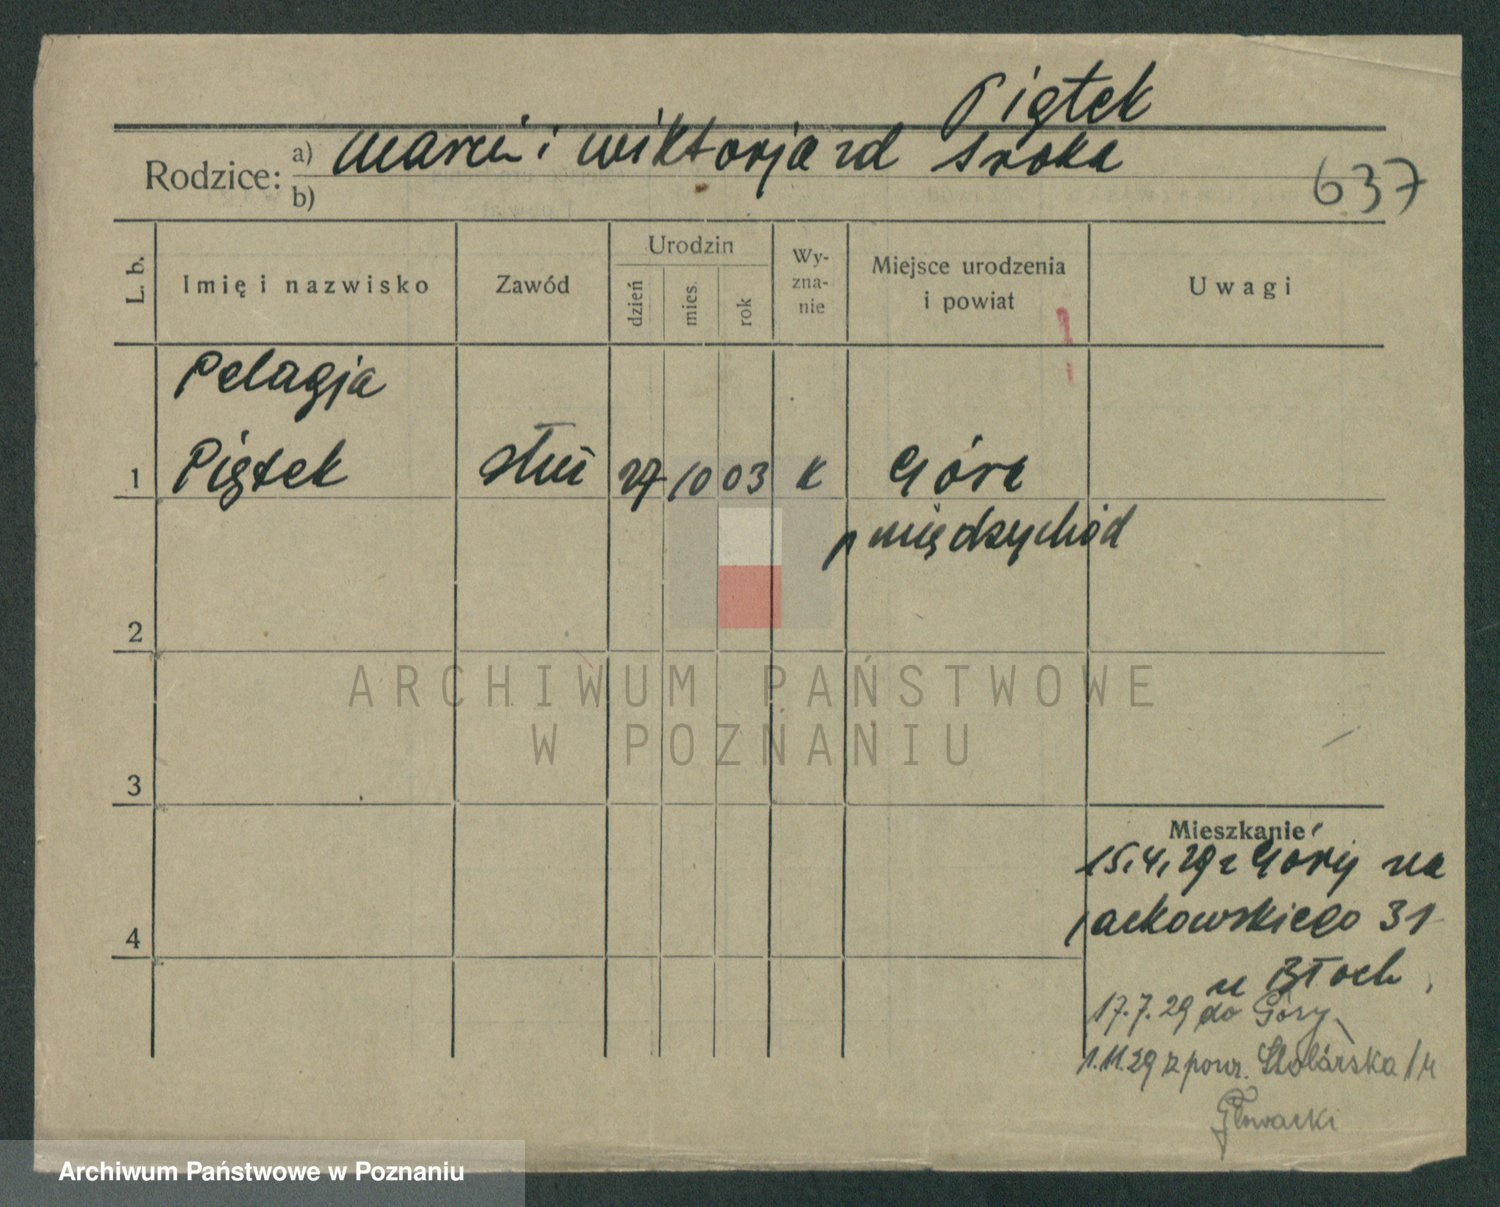 Piątek
Rodzice: a) Marcin i Wiktorja zd Sroka
b)
637
L. b.
Imię i nazwisko
Zawód
Urodzin
dzień
mies.
rok
Wy-
zna-
nie
Miejsce urodzenia
i powiat
Uwagi
Pelagja
1 Piątek służ 27 10 03 K Góra
p Międzychód
2
ARCHIWUM PAŃSTWOWE
W POZNANIU
3
Mieszkanie
15.4.29 z Góry na
Jackowskiego 31
u Błoch
4
17.7.29 do Góry
1.11.29 z powr. Stolarska 1/4
Głowacki
Archiwum Państwowe w Poznaniu